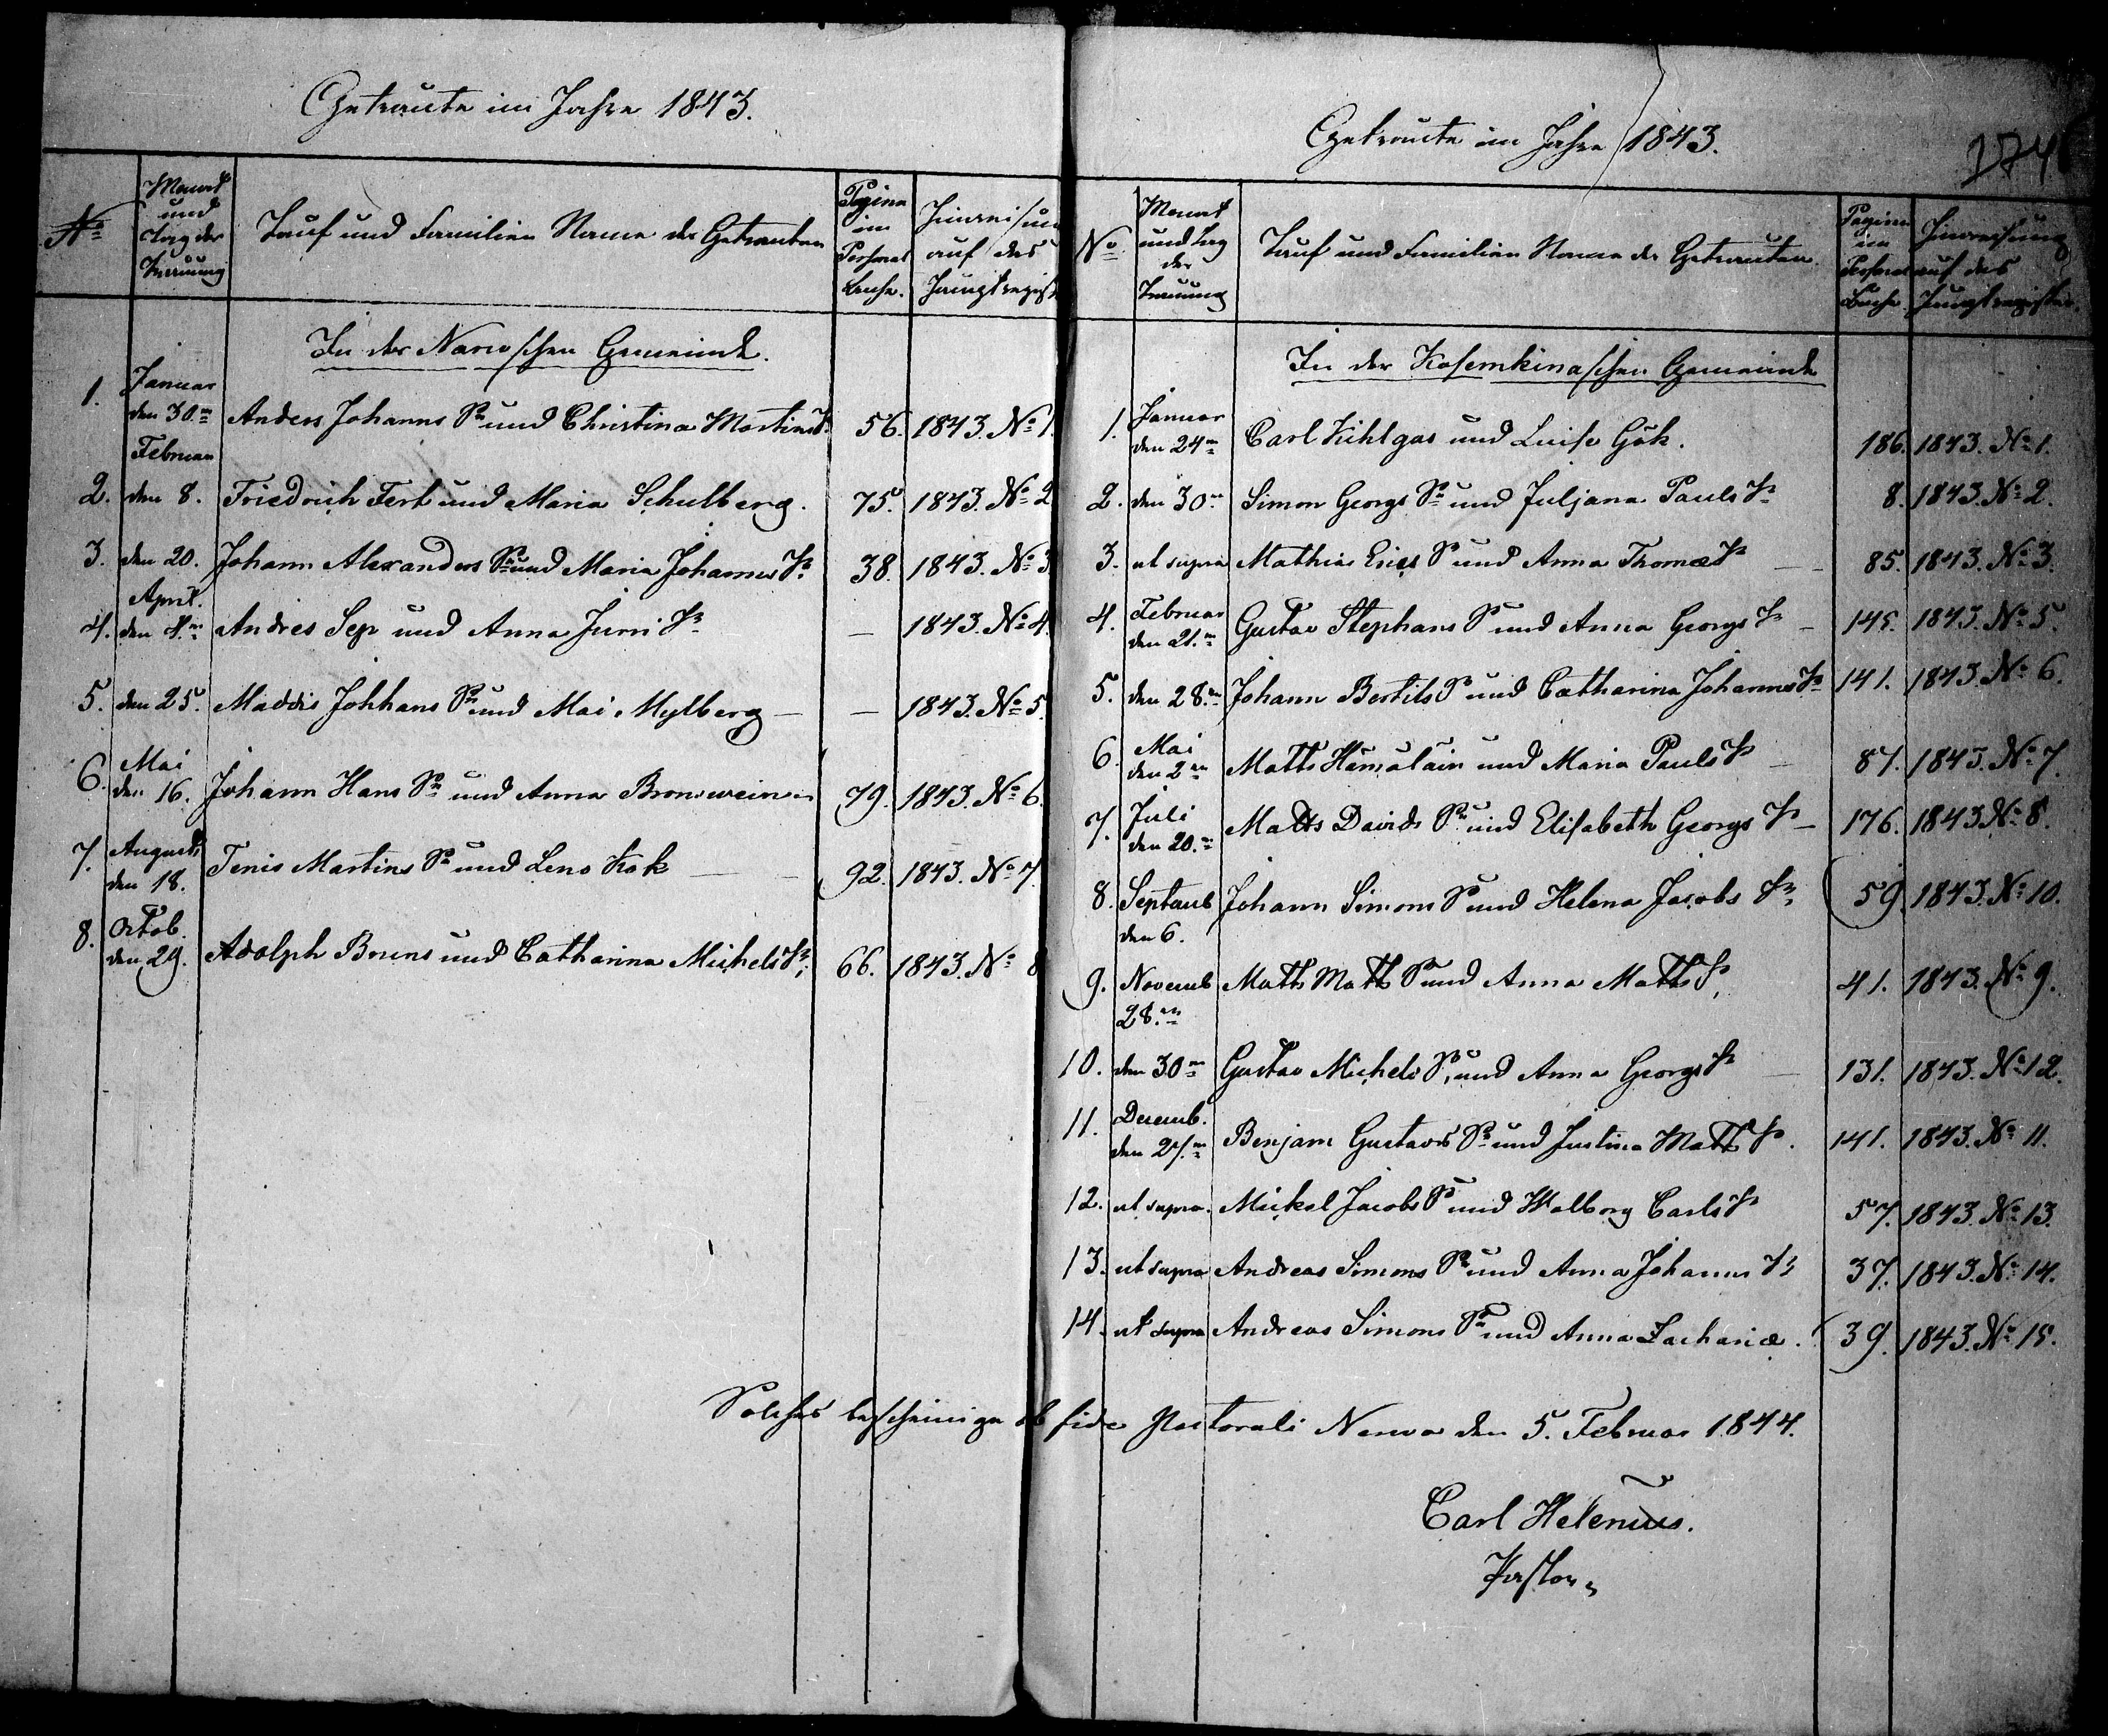 Getraute im Jahre 1843.
№ Monat und Tag der Trauung Tauf und Familien Name der Getrauten Pagina im Personal Buche. Hinweisung auf das Hauptregist
In der Narwschen Gemeinde.
1. Januar den 30.ⁿ Anders Johanns Sⁿ und Christina Martins Tʳ 56. 1843. № 1.
Februar
2. den 8. Friedrich Fert und Maria Schulberg. 75. 1843. № 2
3. den 20. Johann Alexanders Sⁿ und Maria Johanns Tʳ 38. 1843. № 3
April.
4. den 4.ⁿ Andres Sep und Anna Jurri Tʳ — 1843. № 4.
5. den 25. Maddis Johhans Sⁿ und Mai Mylberg — — 1843. № 5.
6. Mai den 16. Johann Hans Sⁿ und Anna Bronswein 79. 1843. № 6.
7. August den 18. Tenis Martins Sⁿ und Leno Kok — 92. 1843. № 7.
8. Octob. den 29. Adolph Bruns und Catharina Michels Tʳ 66. 1843. № 8
Getraute im Jahre 1843.
174
№ Monat und Tag der Trauung Tauf und Familien Name der Getrauten. Pagina im Personal Buche Hinweisung auf das Hauptregister.
In der Kosemkinaschen Gemeinde
1. Januar den 24ⁿ Carl Kühlgas und Luise Gök. 186. 1843. № 1.
2. den 30ⁿ Simon Georgs Sⁿ und Juljana Pauls Tʳ 8. 1843. № 2.
3. ut supra Mathias Erics Sⁿ und Anna Thomæ Tʳ — 85. 1843. № 3.
4. Februar den 21.ⁿ Gustav Stephans Sⁿ und Anna Georgs Tʳ — 145. 1843. № 5.
5. den 28.ⁿ Johann Bertils Sⁿ und Catharina Johanns Tʳ 141. 1843. № 6.
6. Mai den 2ⁿ Matts Hämäläin und Maria Pauls Tʳ — 87. 1843. № 7.
7. Juli den 20.ⁿ Matts Davids Sⁿ und Elisabeth Georgs Tʳ — 176. 1843 № 8.
8. Septemb den 6. Johann Simons Sⁿ und Helena Jacobs Tʳ 59. 1843. № 10.
9. Novemb 28.ⁿ Matts Matts Sⁿ und Anna Matts Tʳ 41. 1843. № 9.
10. den 30ⁿ Gustav Michels Sⁿ, und Anna Georgs Tʳ — 131. 1843. № 12.
11. Decemb. den 27.ⁿ Benjam Gustavs Sⁿ und Justina Matts Tʳ. 141. 1843. № 11.
12. ut supra. Mickel Jacobs Sⁿ und Walborg Carls Tʳ 57. 1843. № 13.
13. ut supra Andreas Simons Sⁿ und Anna Johanns Tʳ 37. 1843. № 14.
14. ut supra Andreas Simons Sⁿ und Anna Zachariæ. 39. 1843. № 15.
Solches bescheinige sub fide Pastorali Narva den 5. Februar 1844.
Carl Helenius.
Pastor.